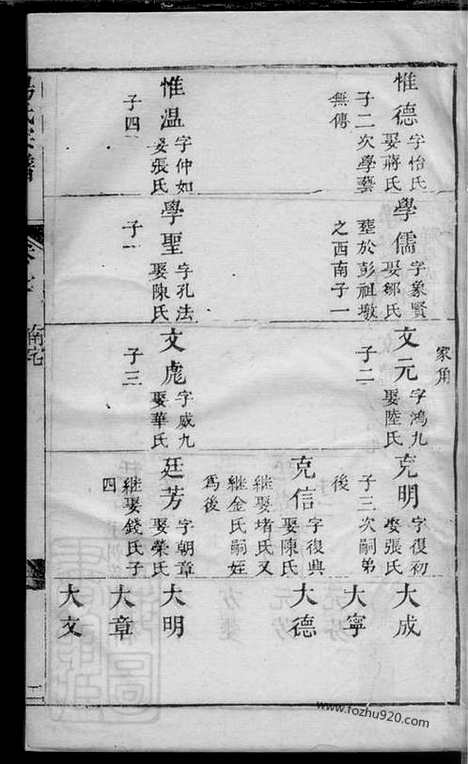 家角
惟德
字怡氏
娶蔣氏
子二次學藝
無傳
惟溫
字仲如
娶張氏
子四
學儒
字象賢
娶鄒氏
塟於彭祖墩
之西南子一
學聖
字孔法
娶陳氏
子一
文元
字鴻九
娶陸氏
子二
文彪
字威九
娶華氏
子三
克明
字復初
娶張氏
子三次嗣弟
後
克信
字復興
娶陳氏
継娶堵氏又
継金氏嗣姪
爲後
廷芳
字朝章
娶榮氏
継娶錢氏子
四
大成
大寧
大德
大明
大章
大文
南宅
二
www.fozhu920.com